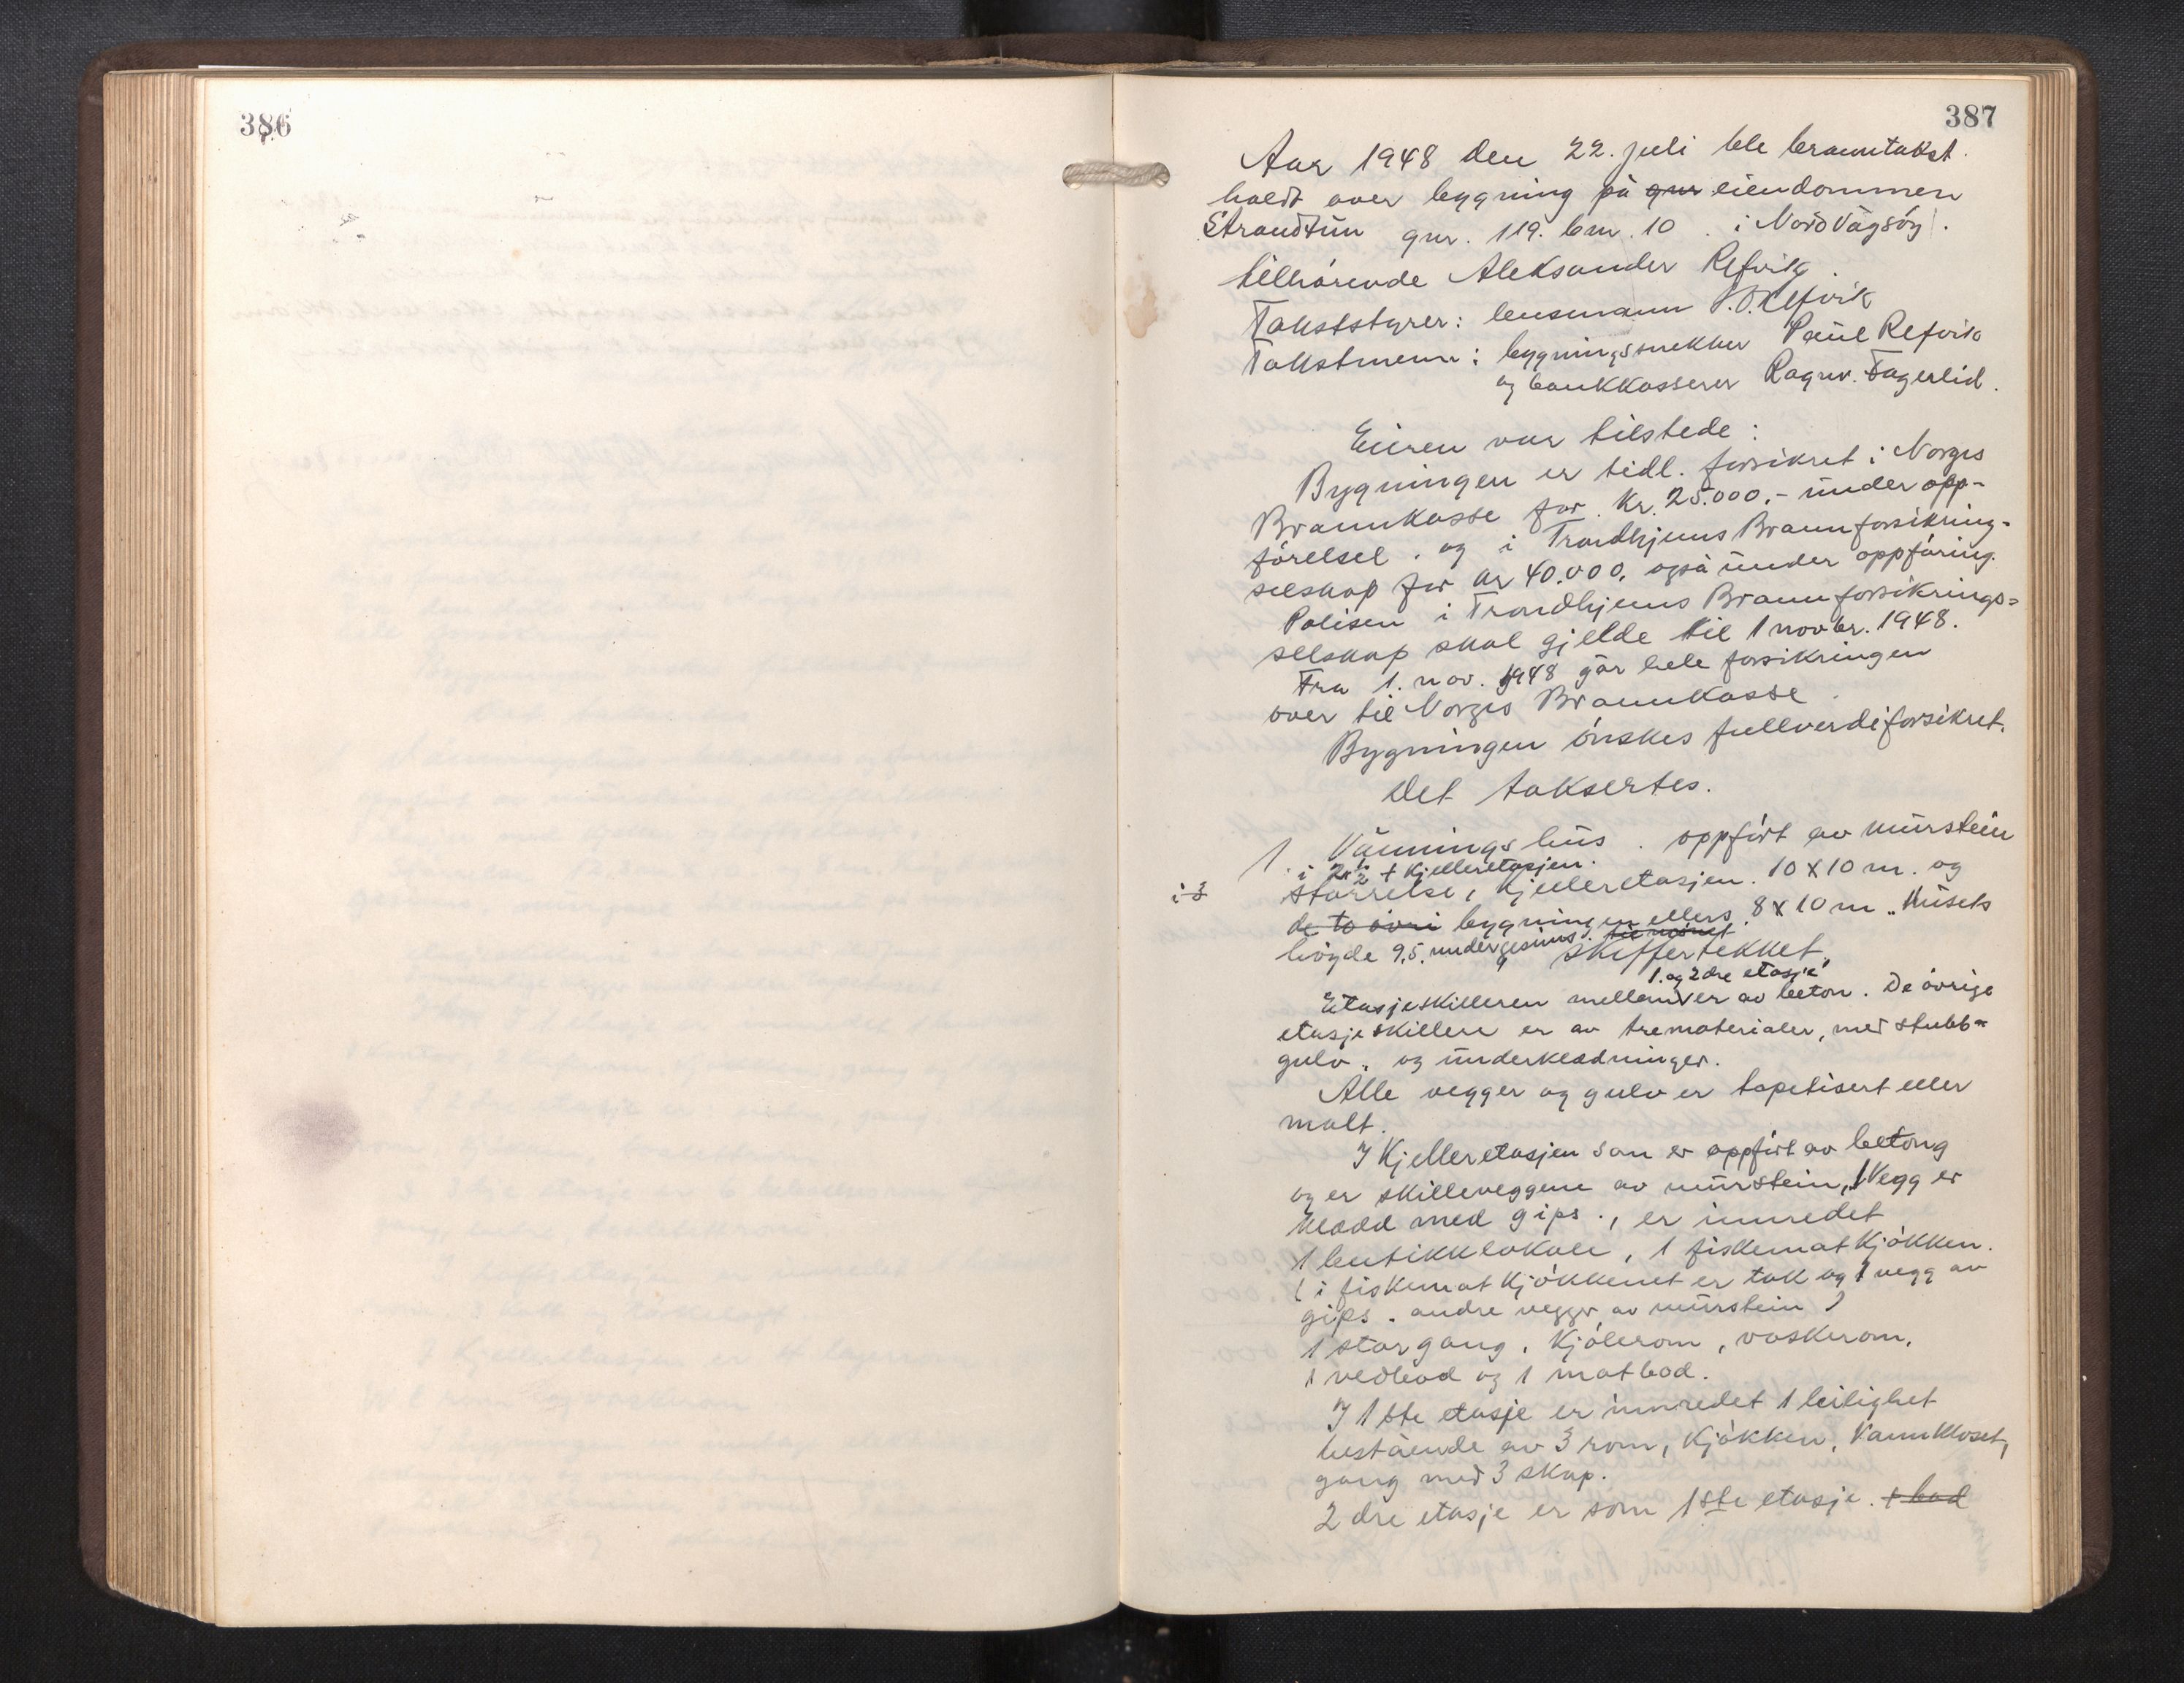 386
387
Aar 1948 den 22. juli ble branntakst
holdt over bygning på gnr eiendommen
Strandtun gnr. 119. bnr. 10. i Nord Vågsøy.
tilhørende Aleksander Refvik.
Takststyrer: lensmann Refvik
Takstmenn: bygningssnekker Paul Refvik
og bankkasserer Ragnv. Fagerlid.
Eieren var tilstede:
Bygningen er tidl. forsikret i Norges
Brannkasse for kr. 25.000.- under opp-
førelsel. og i Trondhjems Brannforsikring-
selskap for kr 40.000. også under oppføring.
Polisen i Trondhjems Brannforsikrings=
selskap skal gjelde til 1 novbr. 1948.
Fra 1. nov. 1948 går hele forsikringen
over til Norges Brannkasse.
Bygningen ønskes fullverdiforsikret.
Det taksertes.
1. Vånningshus. oppført av murstein
i 2 1/2 + Kjelleretasjen.
i 3 størrelse, Kjelleretasjen. 10 X 10 m. og
de to øvri bygningen ellers 8 X 10 m. Husets
høyde 9,5. under gesims. til mønet skiffertekket.
1. og 2dre etasje
Etasjeskilleren mellem er av beton. De øvrige
etasjeskillere er av trematerialer, med stubb=
gulv. og underklædninger.
Alle vegger og gulv er tapetisert eller
malt.
I Kjelleretasjen som er oppført av betong
og er skilleveggene av murstein, 1 Vegg er
klædd med gips., er innredet
1 butikklokale, 1 fiskematkjøkken.
(i fiskematkjøkkenet er tak og 1 vegg av
gips. andre vegger av murstein)
1 stor gang, Kjølerom, vaskerom,
1 vedbod og 1 matbod.
I 1ste etasje er innredet 1 leilighet
bestående av 3 rom, Kjøkken, Vannkloset,
gang med 3 skap.
2dre etasje er som 1ste etasje. + bad